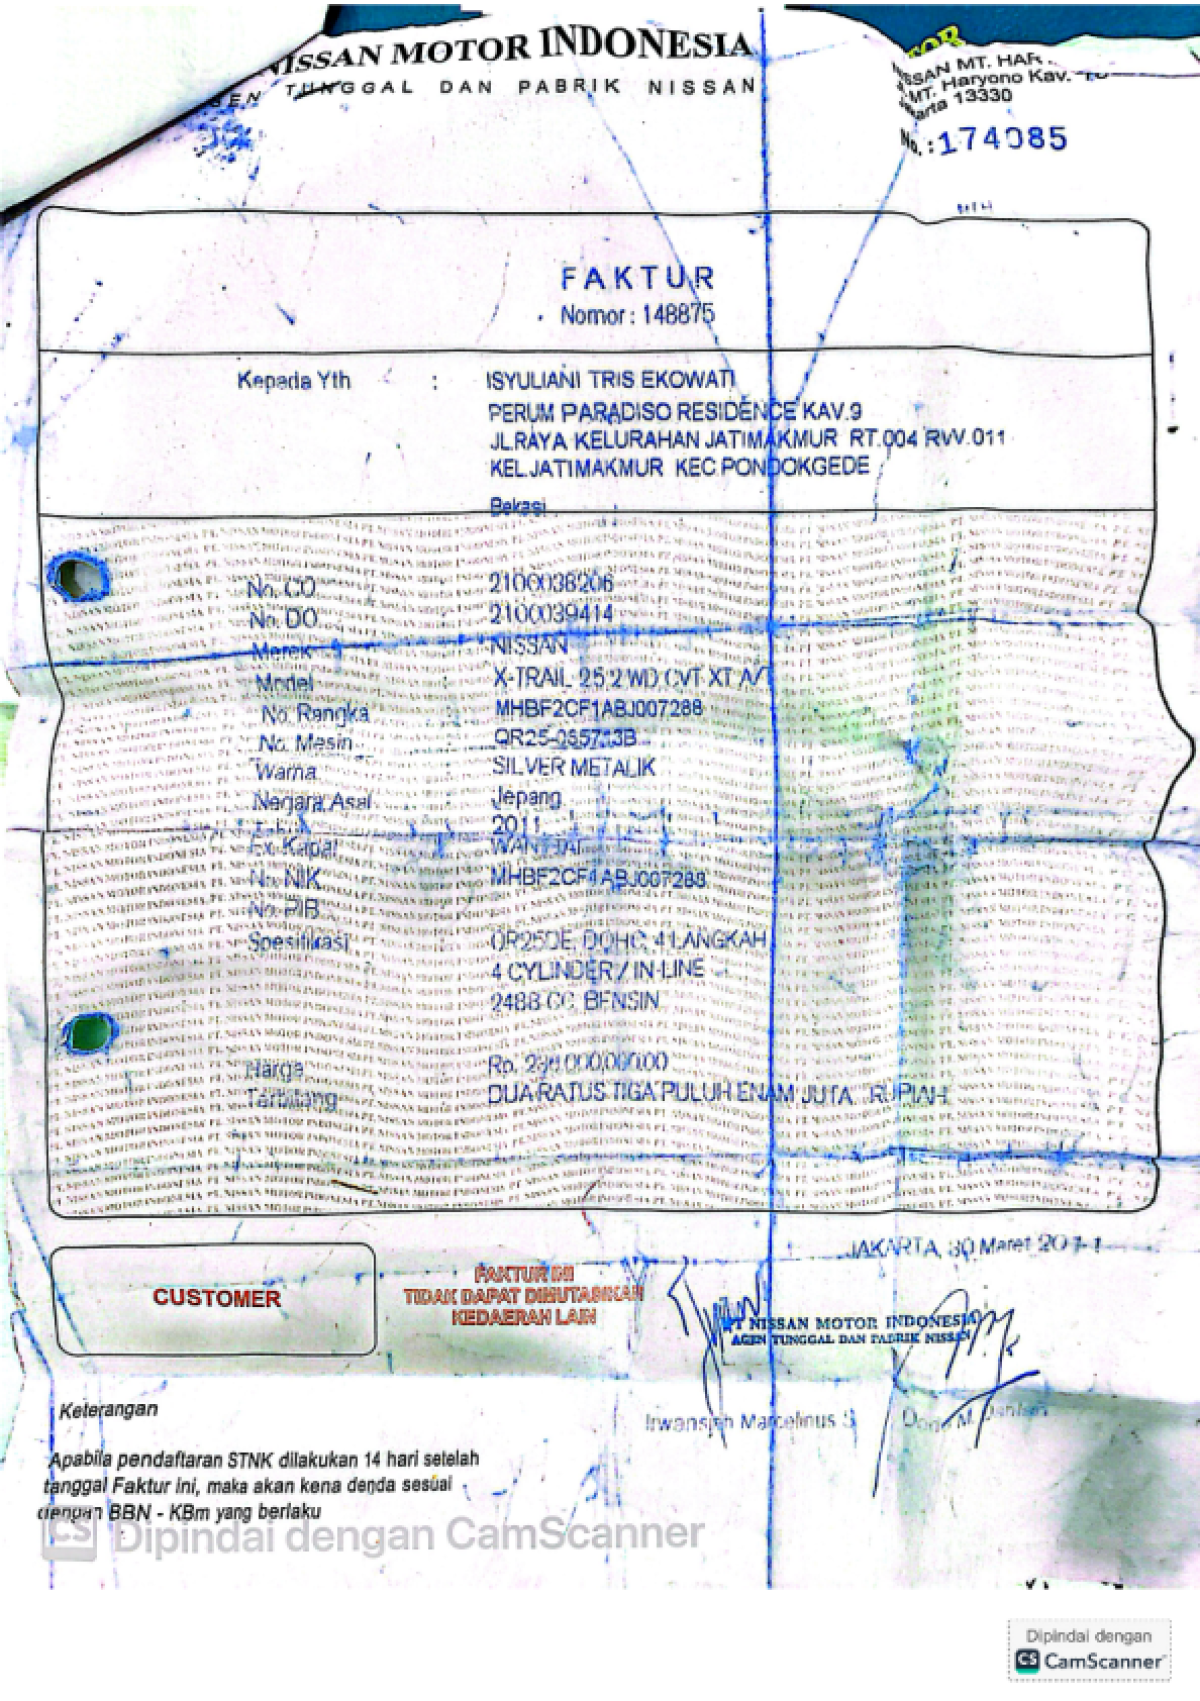 NISSAN MOTOR INDONESIA
TUNGGAL DAN PABRIK NISSAN
NISSAN MT. HAR
MT. Haryono Kav.
13330
No. : 174085
FAKTUR
Nomor : 148875
Kepada Yth : ISYULIANI TRIS EKOWATI
PERUM PARADISO RESIDENCE KAV.9
JL.RAYA KELURAHAN JATIMAKMUR RT.004 RW.011
KEL.JATIMAKMUR KEC PONDOKGEDE
Bekasi
No. CO : 2100038206
No. DO : 2100039414
Merek : NISSAN
Model : X-TRAIL 2.5 2 WD CVT XT A/T
No. Rangka : MHBF2CF1ABJ007288
No. Mesin : QR25-
Warna : SILVER METALIK
Negara Asal : Jepang
2011
Ex. Kapal :
No. NIK : MHBF2CF1ABJ007288
No. PIB
Spesifikasi : QR25DE, DOHC, 4 LANGKAH
4 CYLINDER / IN-LINE
2488 CC, BENSIN
Harga : Rp.
Terbilang : DUA RATUS TIGA PULUH ENAM JUTA RUPIAH
JAKARTA, 30 Maret 2011
CUSTOMER
FAKTUR INI
TIDAK DAPAT DIMUTASIKAN
KEDAERAH LAIN
PT NISSAN MOTOR INDONESIA
AGEN TUNGGAL DAN PABRIK NISSAN
Irwansjah Marcelinus S
Keterangan
Apabila pendaftaran STNK dilakukan 14 hari setelah
tanggal Faktur ini, maka akan kena denda sesuai
dengan BBN - KBm yang berlaku
CS Dipindai dengan CamScanner
Dipindai dengan
CS CamScanner